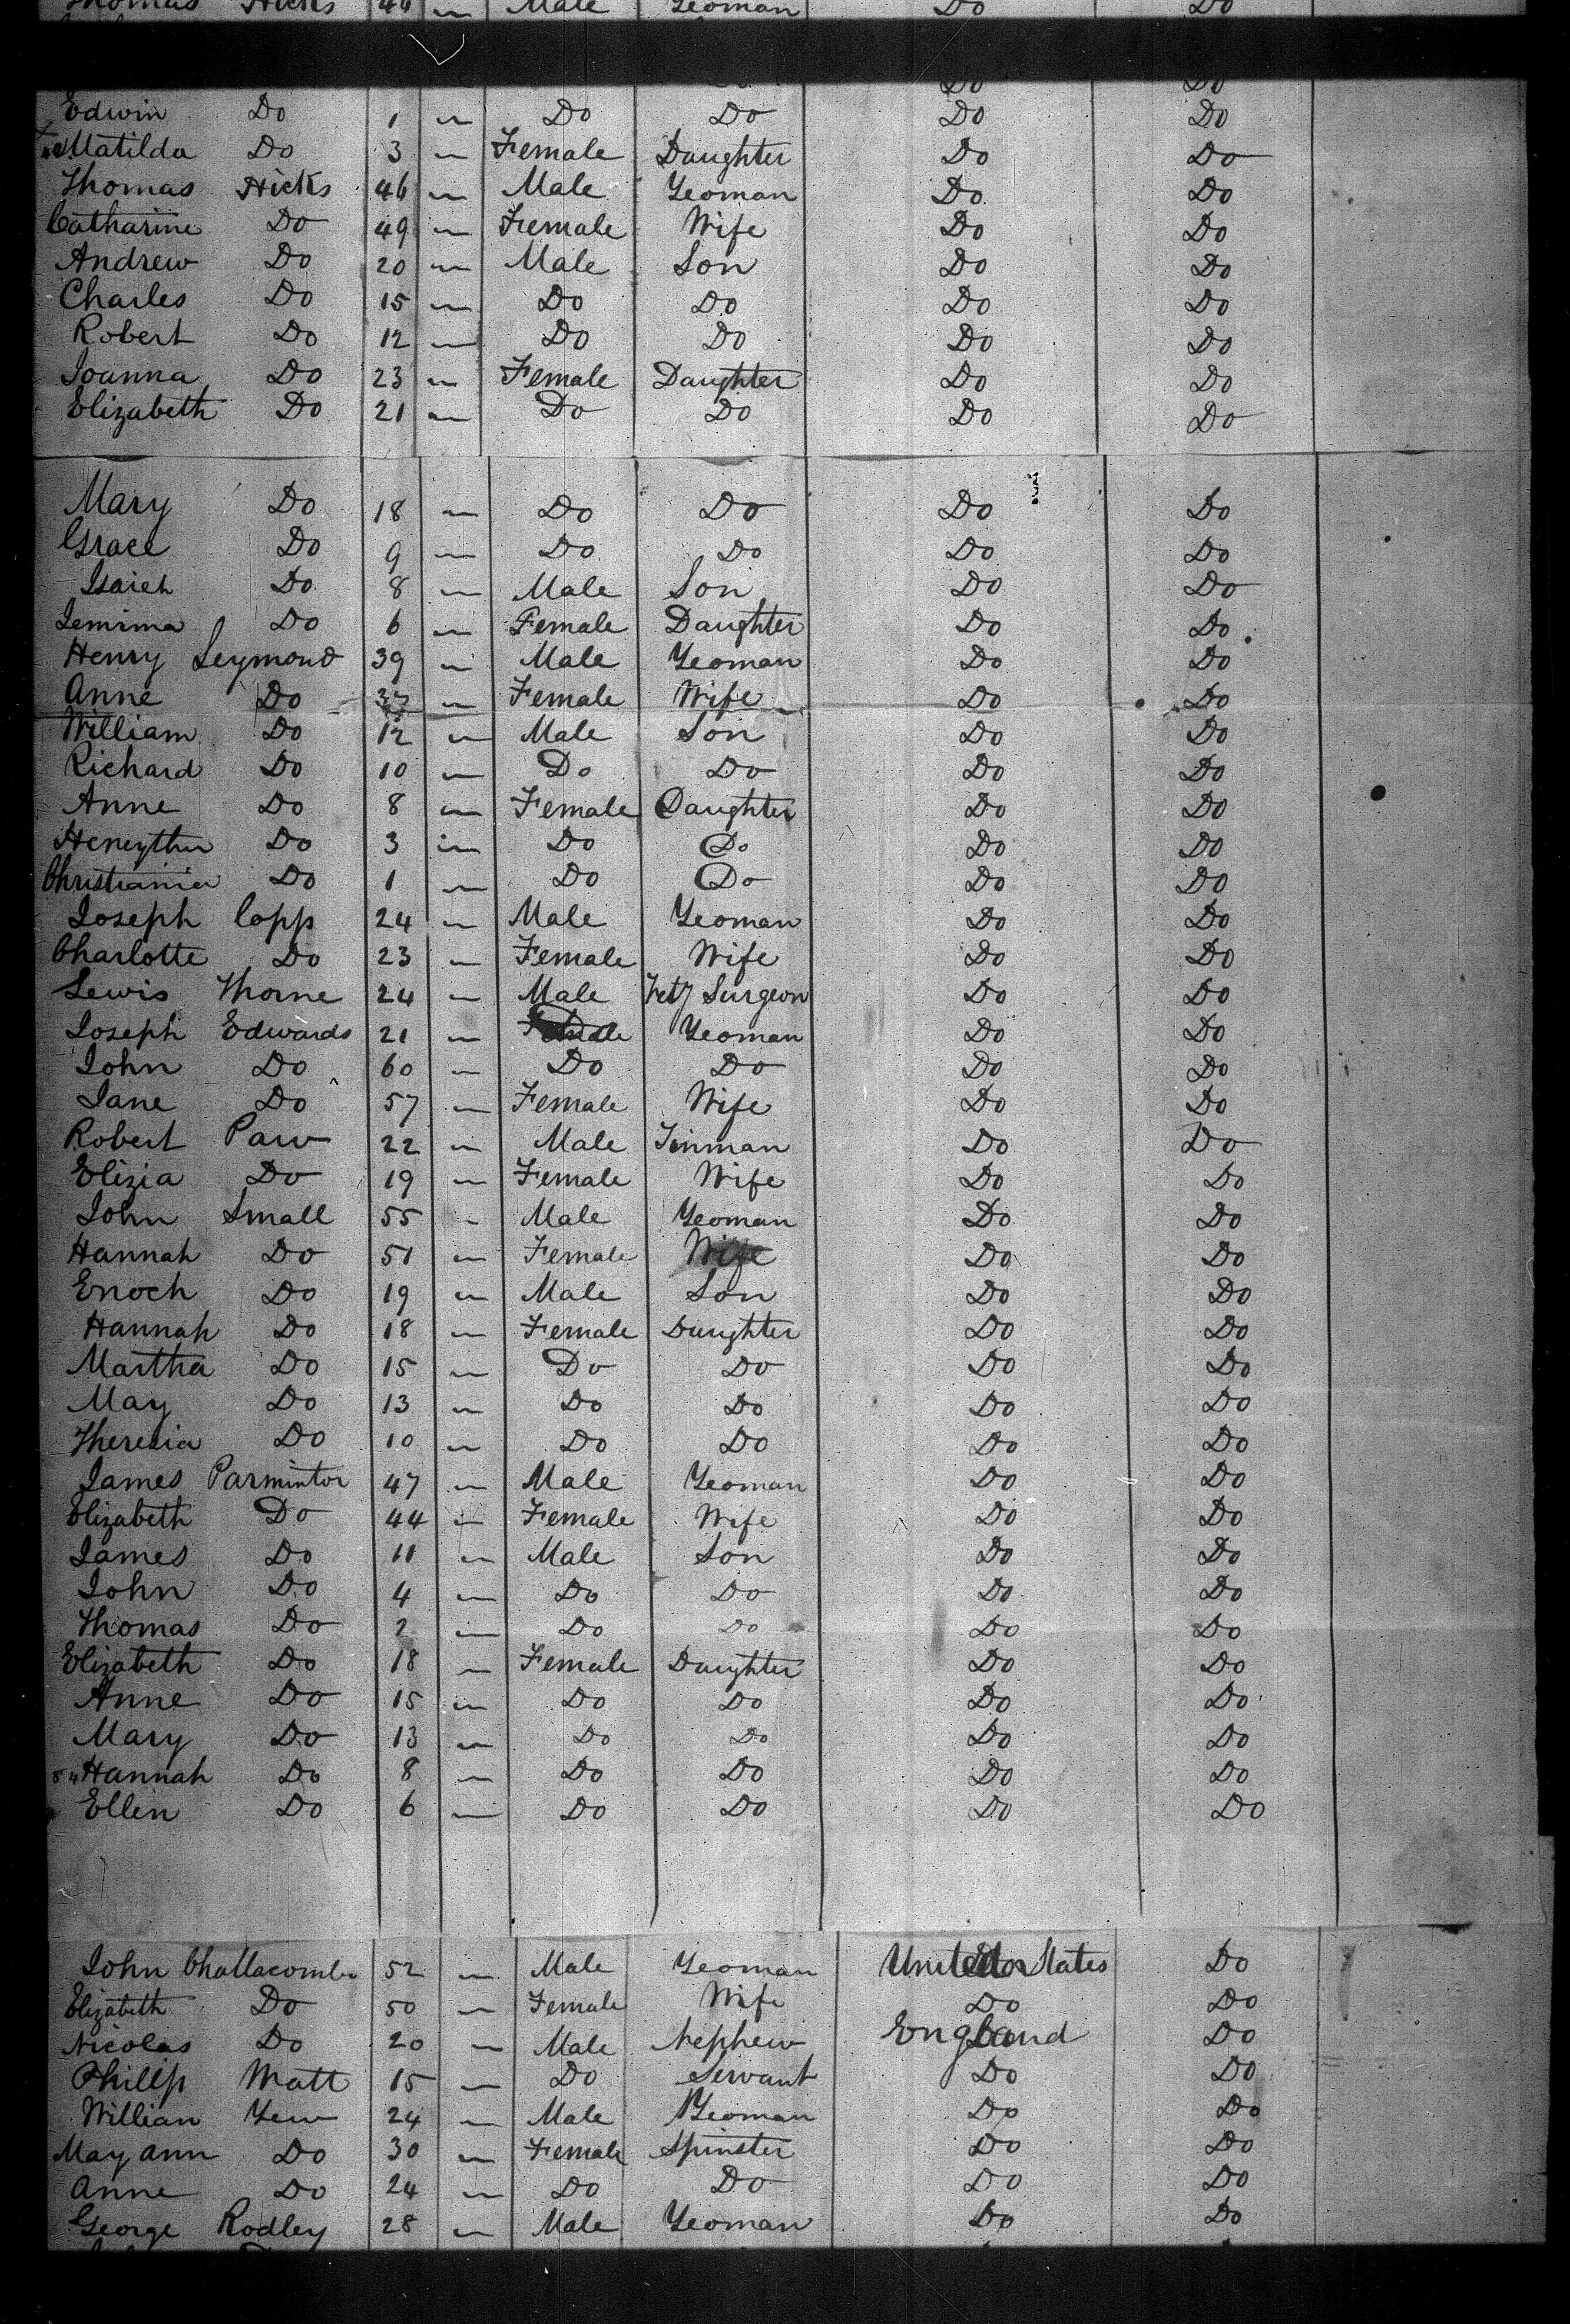 Thomas Hicks 46 Male Yeoman Do Do
Do Do
Edwin Do 1 " Do Do Do Do
Matilda Do 3 " Female Daughter Do Do
Thomas Hicks 46 " Male Yeoman Do Do
Catharine Do 49 " Female Wife Do Do
Andrew Do 20 " Male Son Do Do
Charles Do 15 " Do Do Do Do
Robert Do 12 " Do Do Do Do
Joanna Do 23 " Female Daughter Do Do
Elizabeth Do 21 " Do Do Do Do
Mary Do 18 " Do Do Do Do
Grace Do 9 " Do Do Do Do
Isaieh Do 8 " Male Son Do Do
Jemima Do 6 " Female Daughter Do Do
Henry Seymond 39 " Male Yeoman Do Do
Anne Do 37 " Female Wife Do Do
William Do 12 " Male Son Do Do
Richard Do 10 " Do Do Do Do
Anne Do 8 " Female Daughter Do Do
Do 3 " Do Do Do Do
Christiania Do 1 " Do Do Do Do
Joseph Copp 24 " Male Yeoman Do Do
Charlotte Do 23 " Female Wife Do Do
Lewis Thorne 24 " Male Vety Surgeon Do Do
Joseph Edwards 21 " Male Yeoman Do Do
John Do 60 " Do Do Do Do
Jane Do 57 " Female Wife Do Do
Robert Paw 22 " Male Tinman Do Do
Elizia Do 19 " Female Wife Do Do
John Small 55 " Male Yeoman Do Do
Hannah Do 51 " Female Wife Do Do
Enoch Do 19 " Male Son Do Do
Hannah Do 18 " Female Daughter Do Do
Martha Do 15 " Do Do Do Do
May Do 13 " Do Do Do Do
Theresia Do 10 " Do Do Do Do
James Parmintor 47 " Male Yeoman Do Do
Elizabeth Do 44 " Female Wife Do Do
James Do 11 " Male Son Do Do
John Do 4 " Do Do Do Do
Thomas Do 2 " Do Do Do Do
Elizabeth Do 18 " Female Daughter Do Do
Anne Do 15 " Do Do Do Do
Mary Do 13 " Do Do Do Do
Hannah Do 8 " Do Do Do Do
Ellen Do 6 " Do Do Do Do
John Challacombe 52 " Male Yeoman United States Do
Elizabeth Do 50 " Female Wife Do Do
Nicolas Do 20 " Male Nephew England Do
Philip Matt 15 " Do Servant Do Do
Willian Yew 24 " Male Yeoman Do Do
May ann Do 30 " Female Spinster Do Do
Anne Do 24 " Do Do Do Do
George Rodley 28 " Male Yeoman Do Do